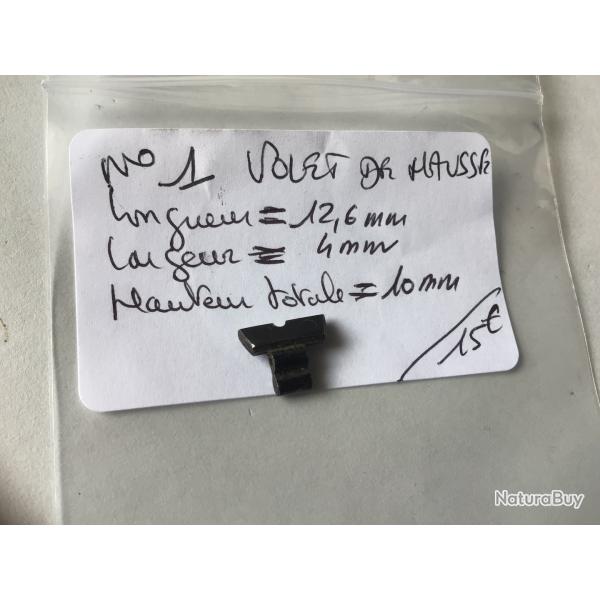 N° 1 VOLET DE HAUSSE
longueur = 12,6 mm
largeur = 4 mm
Hauteur totale = 10 mm
15€
NaturaBuy